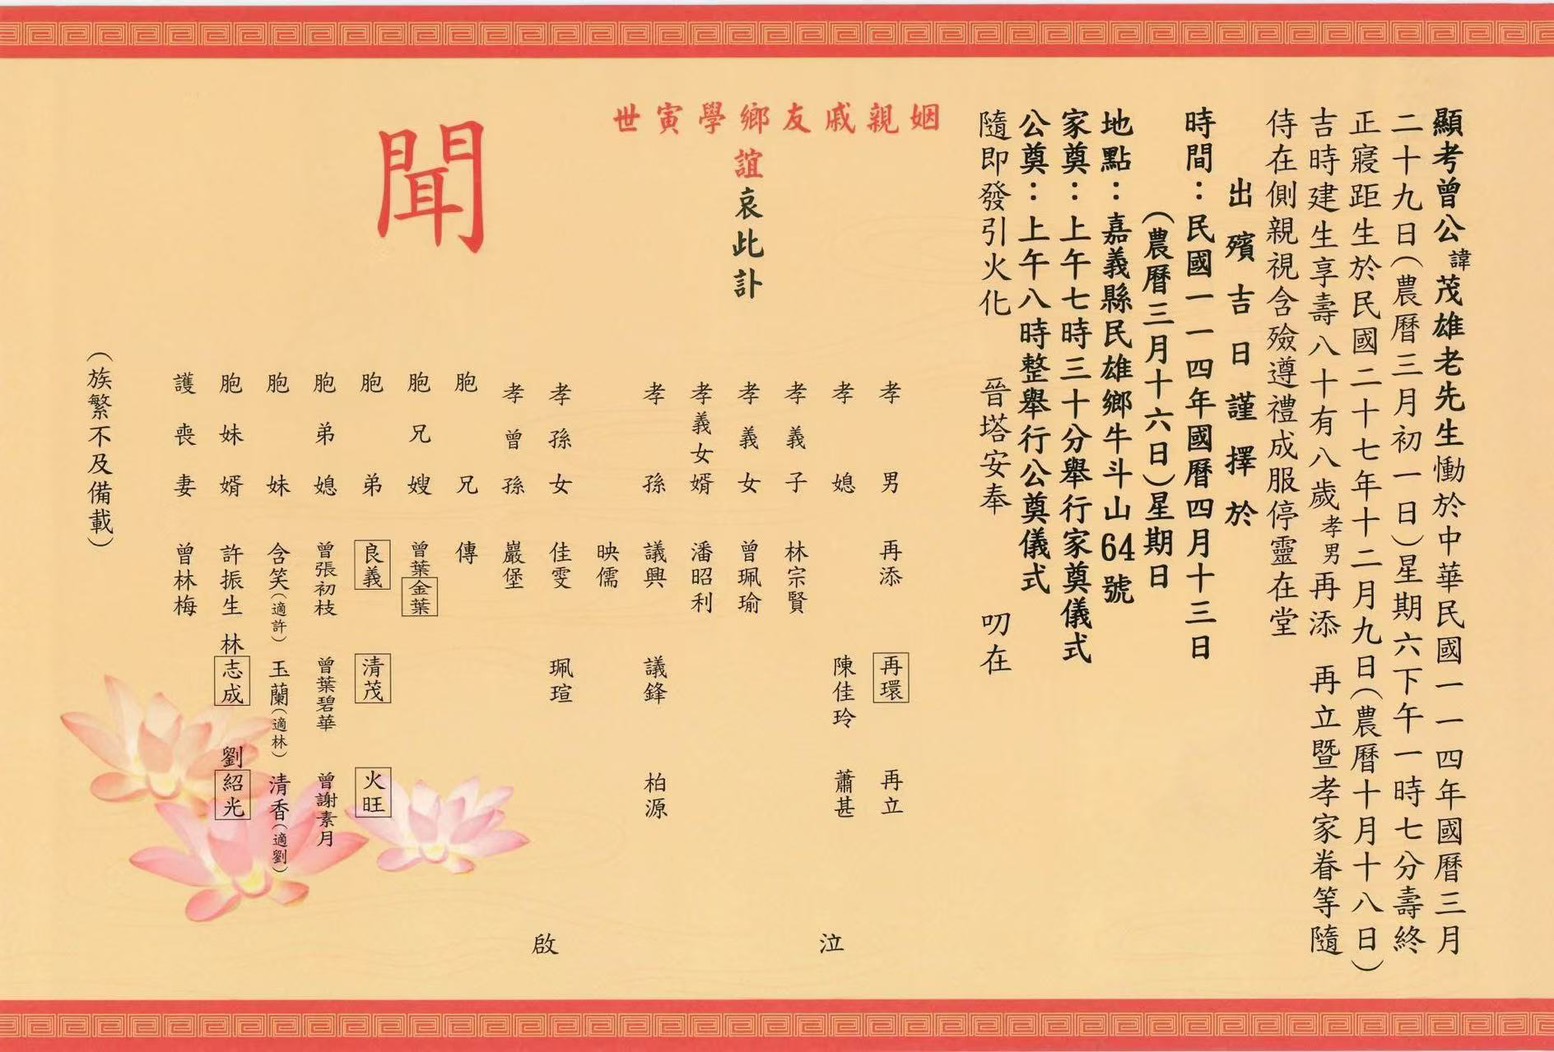 顯考曾公諱茂雄老先生慟於中華民國一一四年國曆三月
二十九日(農曆三月初一日)星期六下午一時七分壽終
正寢距生於民國二十七年十二月九日(農曆十月十八日)
吉時建生享壽八十有八歲孝男再添 再立暨孝家眷等隨
侍在側親視含殮遵禮成服停靈在堂
出殯吉日謹擇於
時間：民國一一四年國曆四月十三日
(農曆三月十六日)星期日
地點：嘉義縣民雄鄉牛斗山64號
家奠：上午七時三十分舉行家奠儀式
公奠：上午八時整舉行公奠儀式
隨即發引火化 晉塔安奉 叨在
姻親戚友鄉學寅世
誼哀此訃
聞
孝男 再添 再環 再立
孝媳 陳佳玲 蕭甚
孝義子 林宗賢
孝義女 曾珮瑜
孝義女婿 潘昭利
孝孫 議興 議鋒 柏源
映儒
孝孫女 佳雯 珮瑄
孝曾孫 巖堡
胞兄 傳
胞兄嫂 曾葉金葉
胞弟 良義 清茂 火旺
胞弟媳 曾張初枝 曾葉碧華 曾謝素月
胞妹 含笑(適許) 玉蘭(適林) 清香(適劉)
胞妹婿 許振生 林志成 劉紹光
護喪妻 曾林梅
泣
啟
(族繁不及備載)